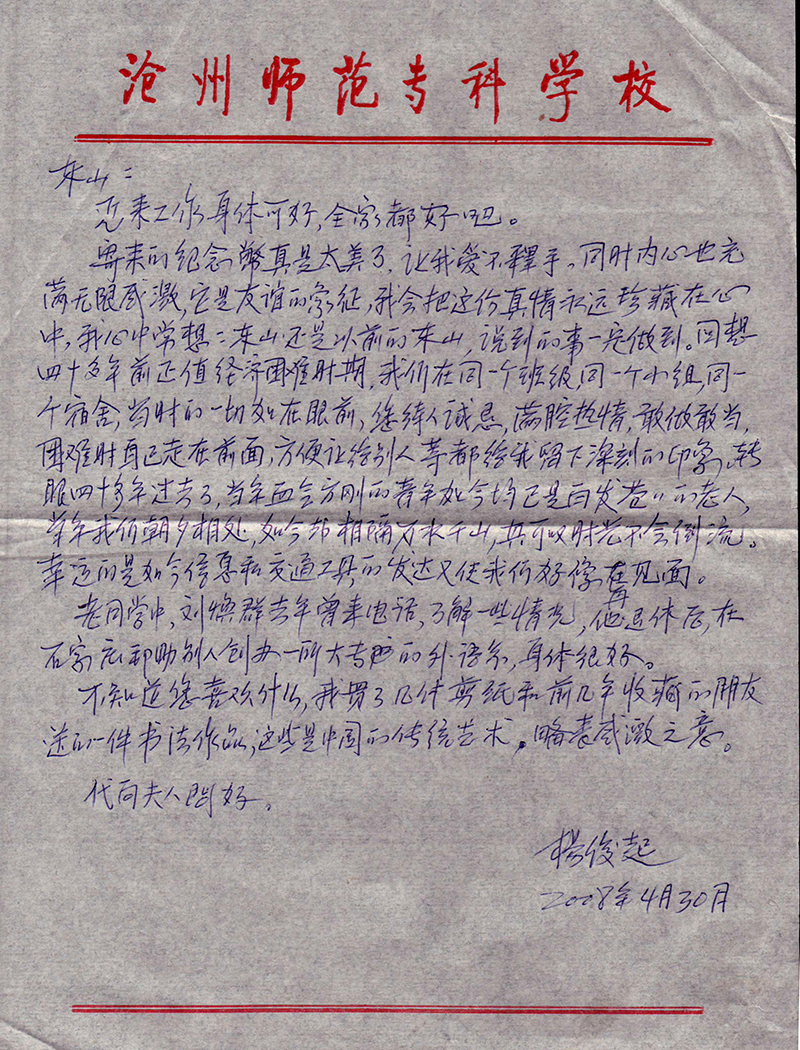 沧州师范专科学校
东山：
近来工作身体可好，全家都好吧。
寄来的纪念幣真是太美了，让我爱不釋手。同时内心也充
满无限感激，它是友谊的象征，我会把这份真情永远珍藏在心
中。我心中常想：东山还是以前的东山，说到的事一定做到。回想
四十多年前正值经济困难时期，我们在同一个班级，同一个小组，同一
个宿舍，当时的一切如在眼前，您待人诚恳，满腔热情，敢做敢当，
困难时自己走在前面，方便让给别人等都给我留下深刻的印象，转
眼四十多年过去了，当年血气方刚的青年如今均已是白发苍〃的老人，
当年我们朝夕相处，如今却相隔万水千山，只可叹时光不会倒流。
幸运的是如今信息和交通工具的发达又使我们好像在见面。
老同学中，刘焕群去年曾来电话，了解一些情况，他再退休后，在
石家庄帮助别人创办一所大专的外语系，身体很好。
不知道您喜欢什么，我買了几件剪纸和前几年收藏的朋友
送的一件书法作品，这些是中国的传统艺术，略表感激之意。
代向夫人問好。
楊俊起
2008年4月30日